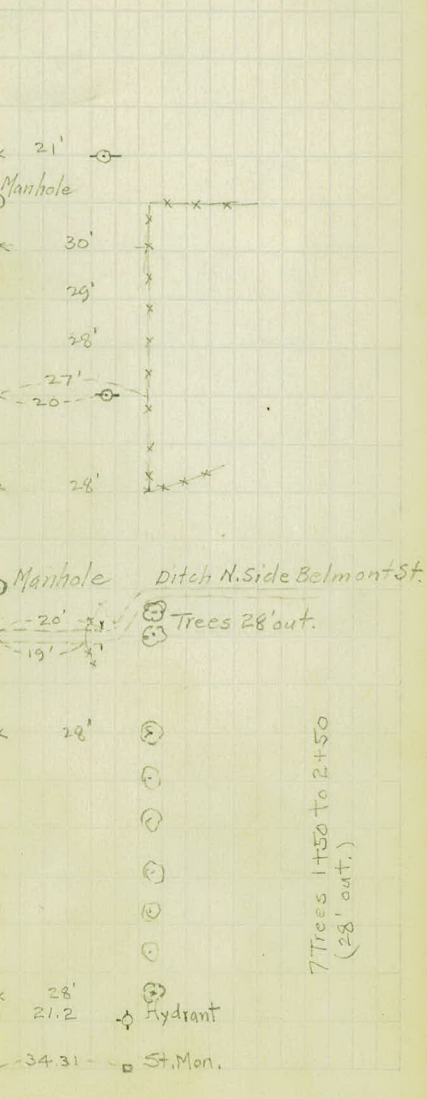 21'
Manhole
30'
29'
28'
27'
20
28'
Manhole
Ditch N.Side Belmont St.
20'
Trees 28' out.
19'
28'
7 Trees 1+50 to 2+50
(28' out.)
28'
21.2
Hydrant
34.31
St.Mon.